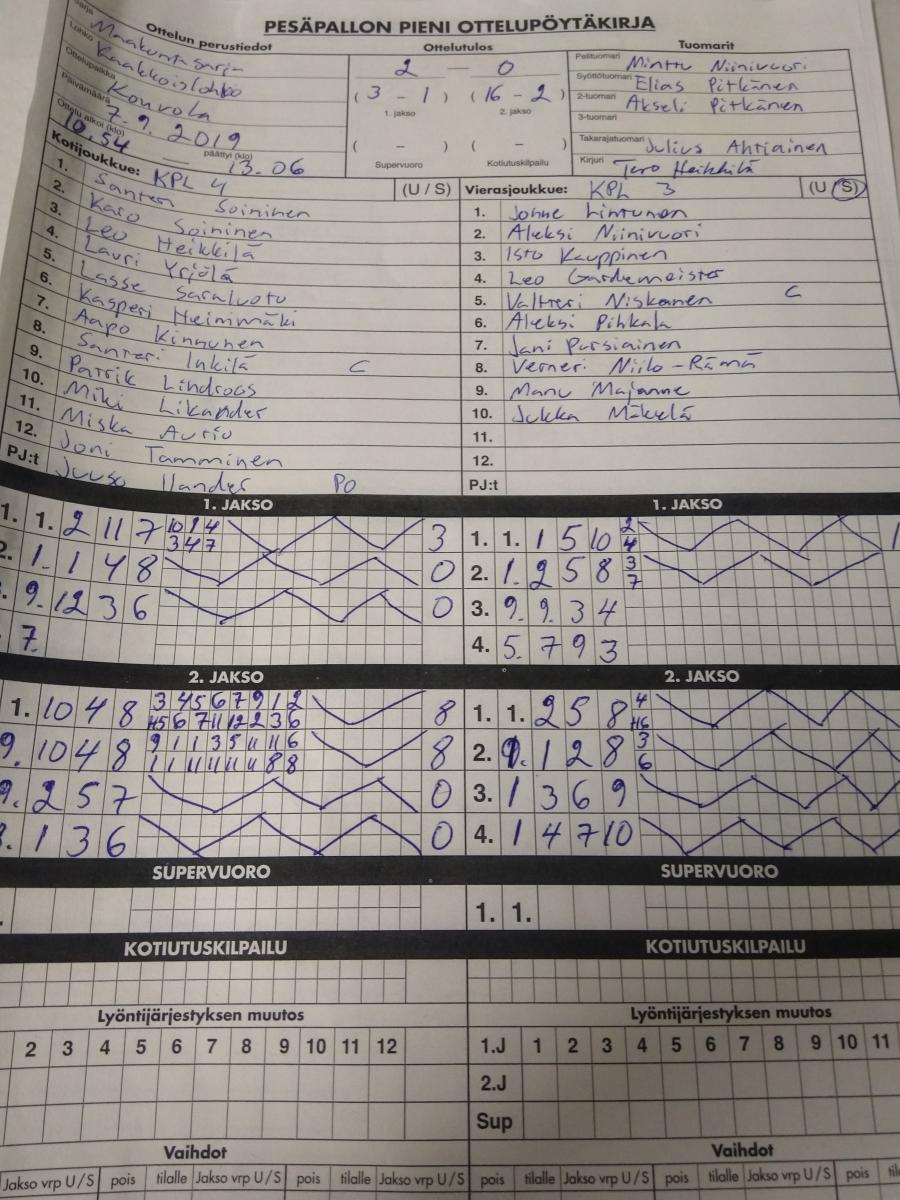 PESÄPALLON PIENI OTTELUPÖYTÄKIRJA
Ottelun perustiedot
Ottelutulos
Tuomarit
Sarja Maakuntasarja
Lohko Kaakkoislohko
Ottelupaikka Kouvola
Päivämäärä 7.9.2019
Ottelu alkoi (klo) 10.54 päättyi (klo) 13.06
2 — 0
( 3 - 1 ) ( 16 - 2 )
1. jakso 2. jakso
( - ) ( - )
Supervuoro Kotiutuskilpailu
Pelituomari Minttu Niinivuori
Syöttötuomari Elias Pitkänen
2-tuomari Akseli Pitkänen
3-tuomari
Takarajatuomari Julius Ahtiainen
Kirjuri Tero Heikkilä
Kotijoukkue: KPL 4 (U / S)
1. Santeri Soininen
2. Karo Soininen
3. Leo Heikkilä
4. Lauri Yrjölä
5. Lasse Saraluoto
6. Kasperi Heimmäki
7. Aapo Kinnunen
8. Santeri Inkilä C
9. Patrik Lindroos
10. Miki Likander
11. Miska Aurio
12. Joni Tamminen
PJ:t Juuso Ilander PO
Vierasjoukkue: KPL 3 (U / S)
1. Jonne Lintunen
2. Aleksi Niinivuori
3. Isto Kauppinen
4. Leo Gardemeister
5. Valtteri Niskanen C
6. Aleksi Pihkala
7. Jani Pursiainen
8. Verneri Niilo-Rämä
9. Manu Majanne
10. Jukka Mäkelä
11.
12.
PJ:t
1. JAKSO 1. JAKSO
1. 1. 2 11 7 10 1 4 3
3 4 7
2. 1. 1 4 8 0
9. 12 3 6 0
7.
1. 1. 1 5 10 2 1
4
2. 1. 2 5 8 3
7
3. 9. 9. 3 4
4. 5. 7 9 3
2. JAKSO 2. JAKSO
1. 10 4 8 3 4 5 6 7 9 1 2 8
6 7 11 12 2 3 6
9. 10 4 8 9 1 1 3 5 11 11 6 8
1 1 11 11 11 11 8 8
9. 2 5 7 0
1 3 6 0
1. 1. 2 5 8 4
2. 1 2 8 3
6
3. 1 3 6 9
4. 1 4 7 10
SUPERVUORO SUPERVUORO
1. 1.
KOTIUTUSKILPAILU KOTIUTUSKILPAILU
Lyöntijärjestyksen muutos Lyöntijärjestyksen muutos
2 3 4 5 6 7 8 9 10 11 12
1.J 1 2 3 4 5 6 7 8 9 10 11
2.J
Sup
Vaihdot Vaihdot
Jakso vrp U/S pois tilalle Jakso vrp U/S pois tilalle Jakso vrp U/S pois tilalle Jakso vrp U/S pois tilalle Jakso vrp U/S pois